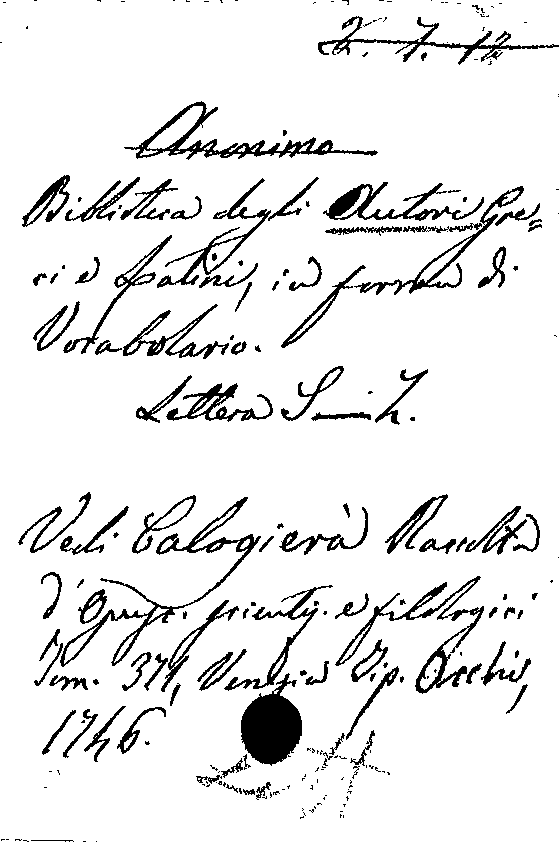 2. 7. 12
Anonimo
Biblioteca degli Autori Gre=
ci e Latini, in forma di
Vocabolario.
Lettera S—Z.
Vedi Calogierà Raccolta
d'Opusc. scientif. e filologici
Tom. 34, Venezia Tip. Occhi,
1746.